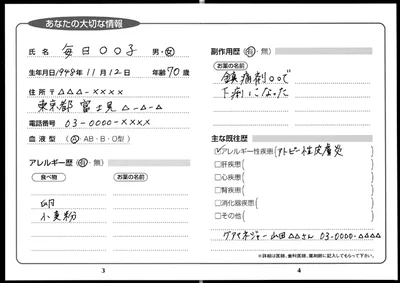 あなたの大切な情報
氏名 毎日〇〇子 男・女
生年月日1948年11月12日 年齢70歳
住所 〒△△△-××××
東京都富士見△-△-△
電話番号 03-0000-××××
血液型 (A・AB・B・O型)
アレルギー歴 (有・無)
食べ物 お薬の名前
卵
小麦粉
3
副作用歴 (有・無)
お薬の名前
鎮痛剤〇〇で
下痢になった
主な既往歴
☑アレルギー性疾患(アトピー性皮膚炎)
□肝疾患( )
□心疾患( )
□腎疾患( )
□消化器疾患( )
□その他( )
ケアマネジャー山田△△さん 03-0000-△△△△
※詳細は医師、歯科医師、薬剤師に記入してもらって下さい。
4